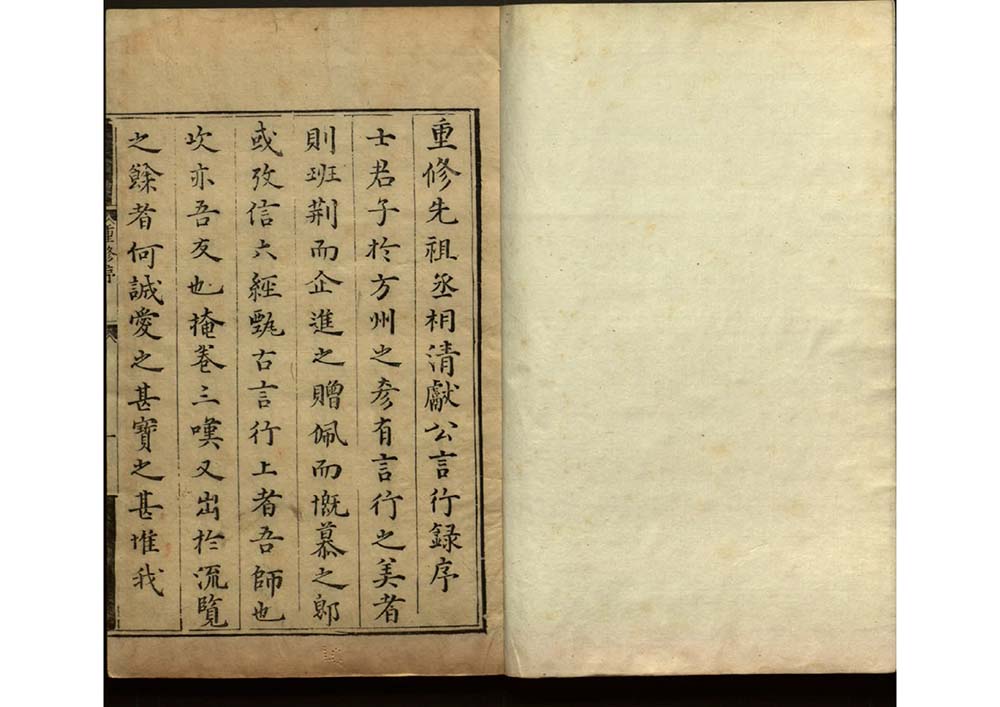 重修先祖丞相清獻公言行録序
士君子於方州之彦有言行之美者
則班荆而企進之贈佩而慨慕之郎
或攷信六經甄古言行上者吾師也
次亦吾友也掩卷三嘆又出於流覽
之餘者何誠愛之甚寶之甚惟我
重修序
一